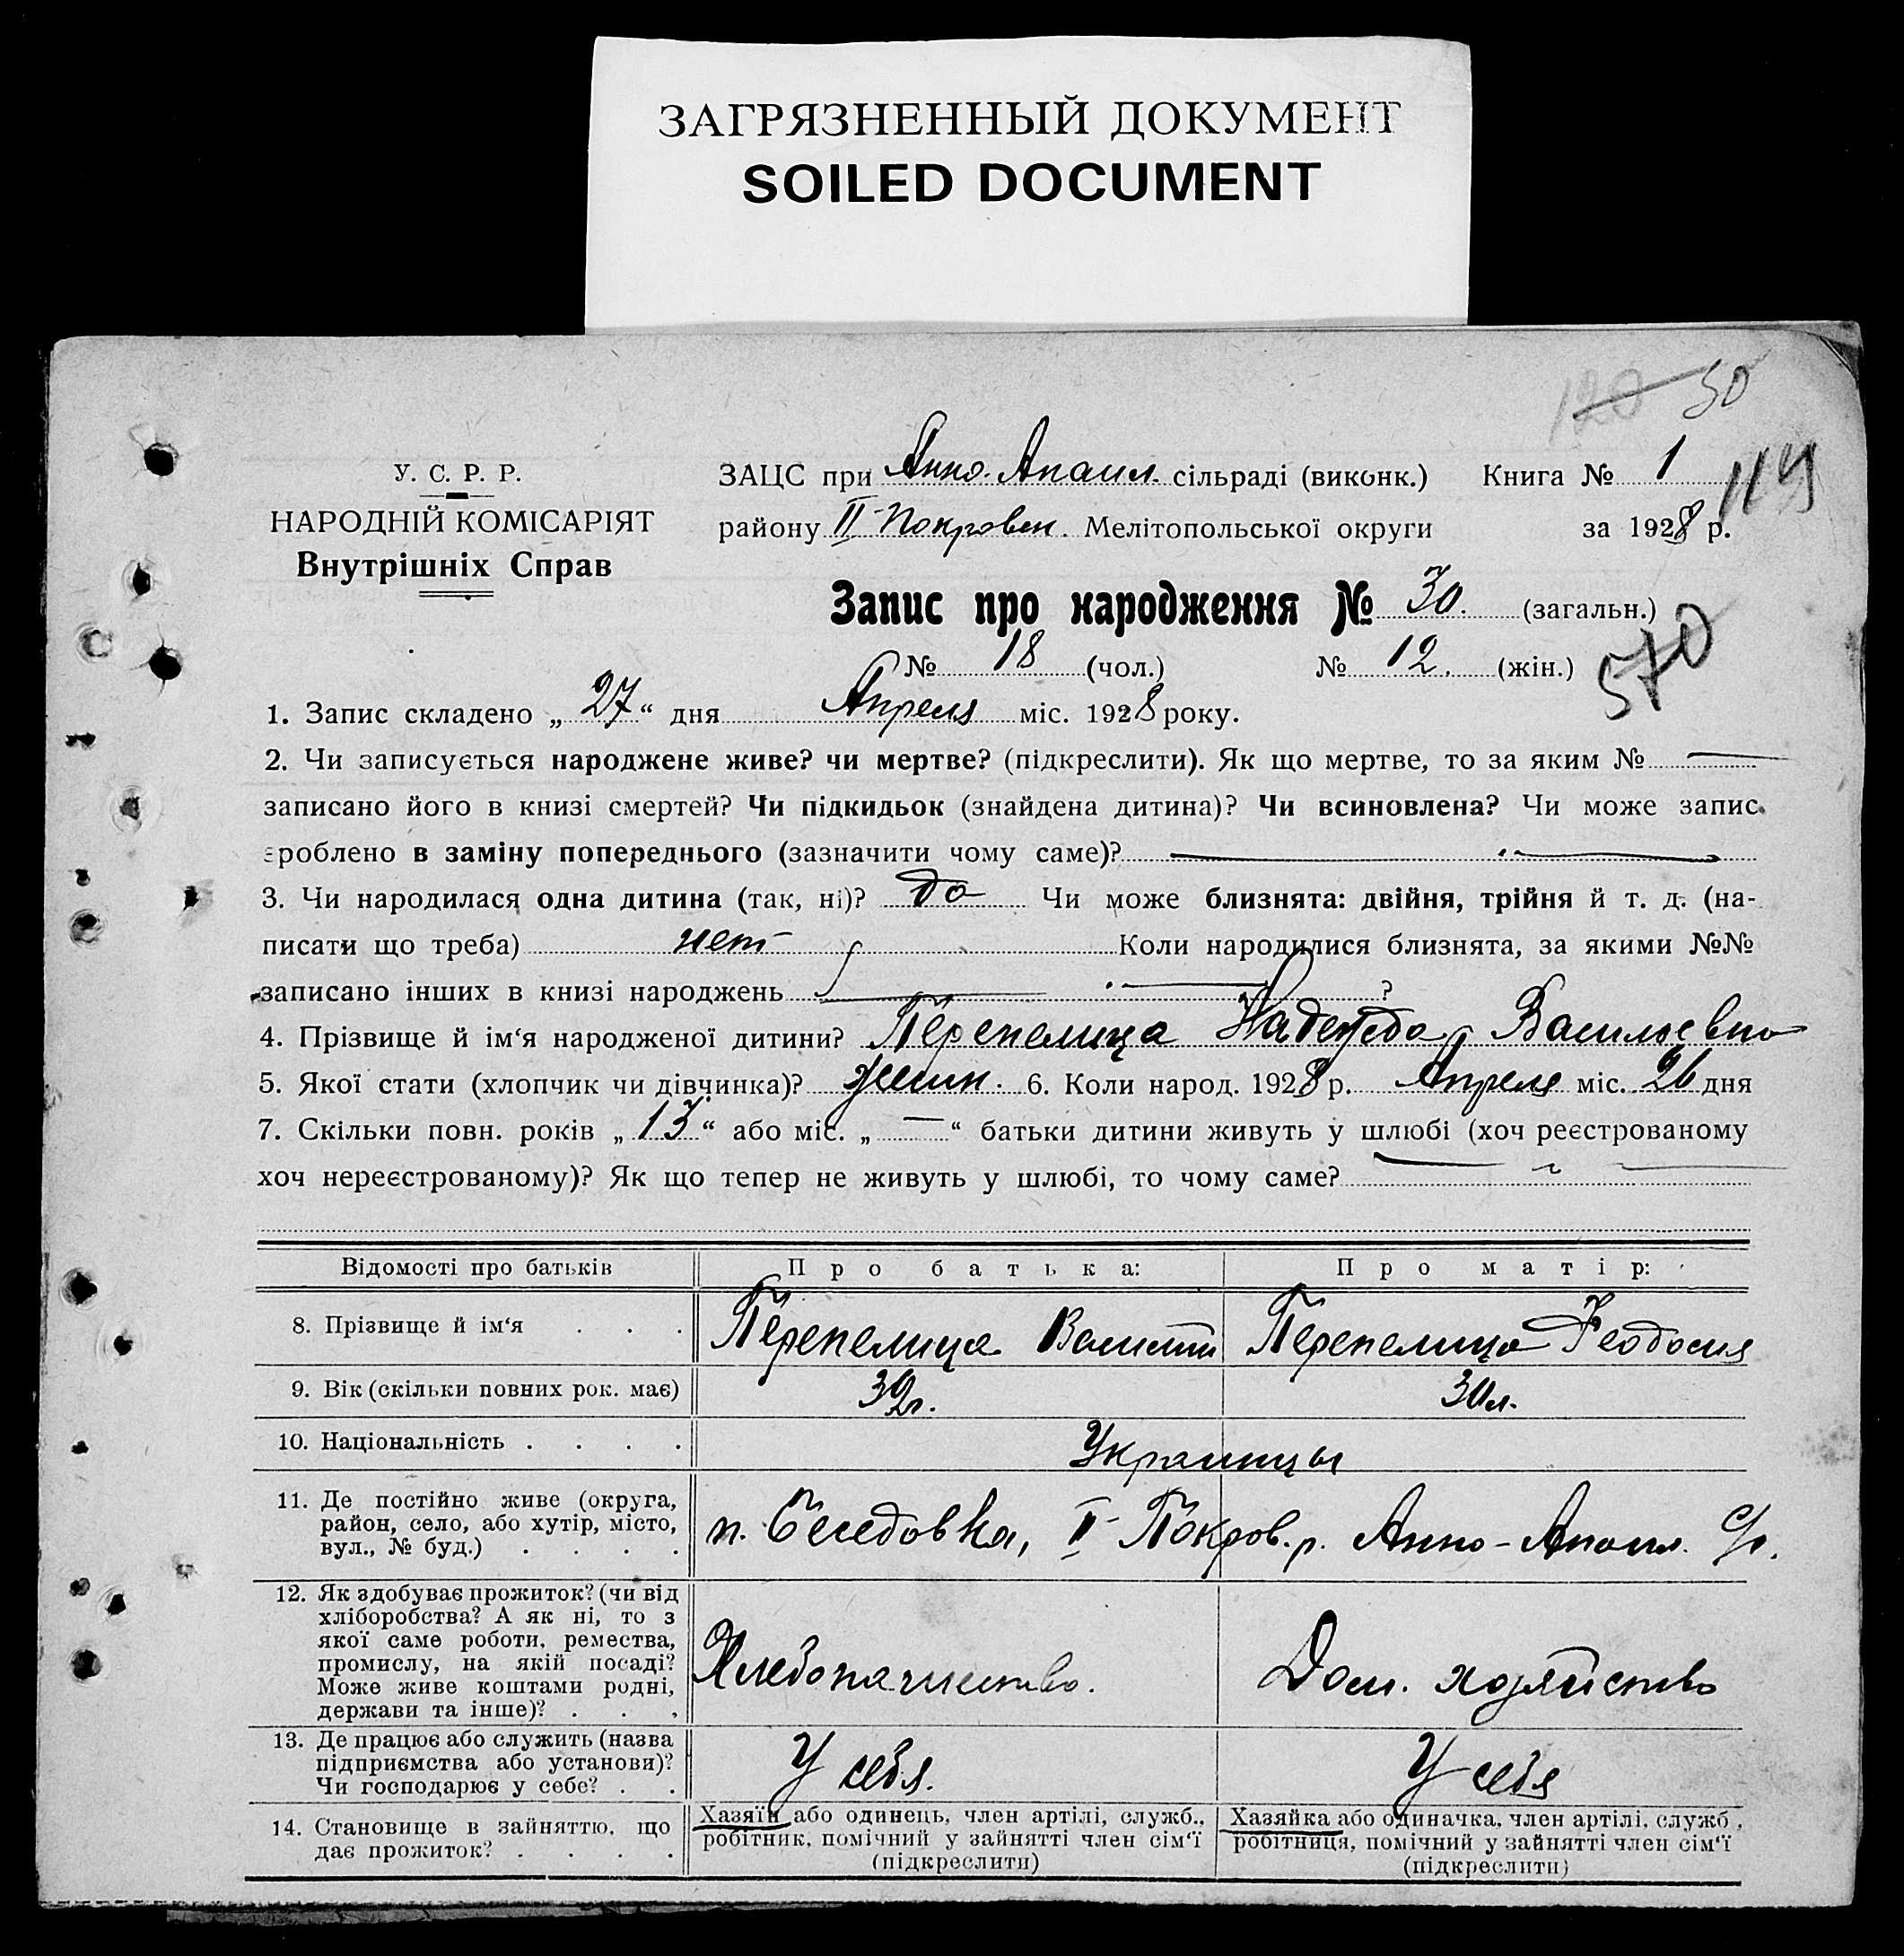 ЗАГРЯЗНЕННЫЙ ДОКУМЕНТ
SOILED DOCUMENT
120 30
У. С. Р. Р.
НАРОДНІЙ КОМІСАРІЯТ
Внутрішніх Справ
ЗАЦС при Анно-Апаил. сільраді (виконк.) Книга № 1
119
району II-Покровск. Мелітопольської округи за 1928 р.
Запис про народження № 30. (загальн.)
№ 18 (чол.) № 12. (жін.)
570
1. Запис складено „27“ дня Апреля міс. 1928 року.
2. Чи записується народжене живе? чи мертве? (підкреслити). Як що мертве, то за яким № —
записано його в книзі смертей? Чи підкидьок (знайдена дитина)? Чи всиновлена? Чи може запис
зроблено в заміну попереднього (зазначити чому саме)? —
3. Чи народилася одна дитина (так, ні)? да Чи може близнята: двійня, трійня й т. д. (на-
писати що треба) нет Коли народилися близнята, за якими №№
записано інших в книзі народжень — ?
4. Прізвище й ім‘я народженої дитини? Перепелица Надежда Васильевна
5. Якої стати (хлопчик чи дівчинка)? женск. 6. Коли народ. 1928 р. Апреля міс. 26 дня
7. Скільки повн. років „13“ або міс. „—“ батьки дитини живуть у шлюбі (хоч реєстрованому
хоч нереєстрованому)? Як що тепер не живуть у шлюбі, то чому саме?
Відомості про батьків Про батька: Про матір:
8. Прізвище й ім‘я . . . Перепелица Василий Перепелица Феодосия
9. Вік (скільки повних рок. має) 32г. 30л.
10. Національність . . . . Украинцы
11. Де постійно живе (округа,
район, село, або хутір, місто,
вул., № буд.) . . . .
п. Беседовка, II-Покров. р. Анно-Апаил. С/с.
12. Як здобуває прожиток? (чи від
хліборобства? А як ні, то з
якої саме роботи, ремества,
промислу, на якій посаді?
Може живе коштами родні,
держави та інше)? . . .
Хлебопашество. Дом. хозяйство
13. Де працює або служить (назва
підприємства або установи)?
Чи господарює у себе? . .
У себя. У себя
14. Становище в зайняттю, що
дає прожиток? . . . .
Хазяїн або одинець, член артілі, служб.,
робітник, помічний у зайнятті член сім‘ї
(підкреслити)
Хазяйка або одиначка, член артілі, служб.,
робітниця, помічний у зайнятті член сім‘ї
(підкреслити)